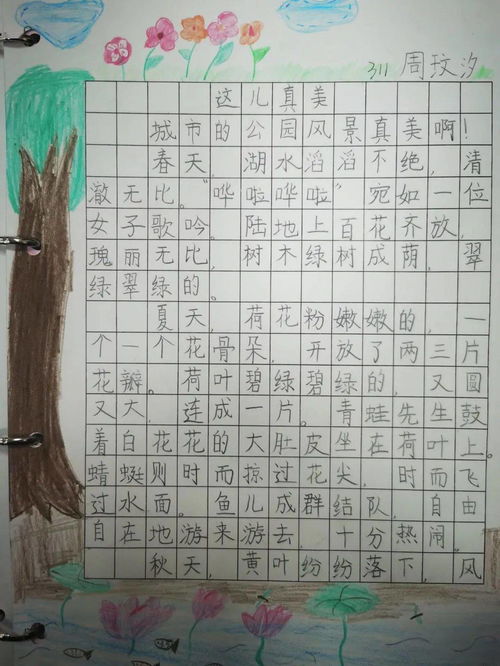 311 周玟汐
这儿真美
城市的公园风景真美啊！
春天，湖水滔滔不绝，清
澈无比。“哗啦哗啦”宛如一位
女子歌吟。陆地上百花齐放，
瑰丽无比，树木绿树成荫，翠
绿翠绿的。
夏天，荷花粉嫩嫩的，一
个一个花骨朵，开放了两三片
花瓣。荷叶碧绿碧绿的，又圆
又大，连成一片。青蛙先生鼓
着白花花的大肚皮坐在荷叶上。
蜻蜓则时而掠过花尖，时而飞
过水面。鱼儿成群结队，自由
自在地游来游去，十分热闹。
秋天，黄叶纷纷落下，风